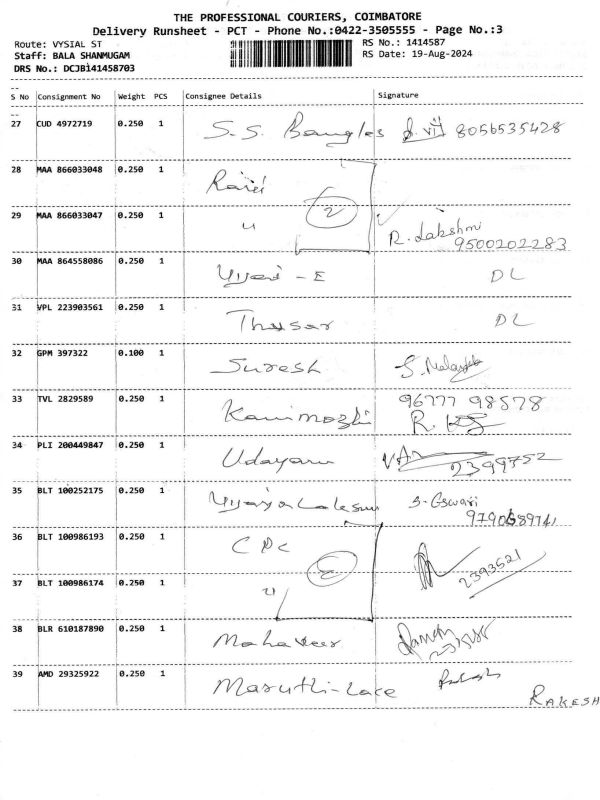 THE PROFESSIONAL COURIERS, COIMBATORE
Delivery Runsheet - PCT - Phone No.:0422-3505555 - Page No.:3
Route: VYSIAL ST RS No.: 1414587
Staff: BALA SHANMUGAM RS Date: 19-Aug-2024
DRS No.: DCJB141458703
S No Consignment No Weight PCS Consignee Details Signature
27 CUD 4972719 0.250 1 S.S. Bangles 8056535428
28 MAA 866033048 0.250 1 2
29 MAA 866033047 0.250 1 " R. Lakshmi
9500202283
30 MAA 864558086 0.250 1 DL
31 VPL 223903561 0.250 1 Thusar DL
32 GPM 397322 0.100 1 Suresh
33 TVL 2829589 0.250 1 Kanimozhi 96777 98578
34 PLI 200449847 0.250 1 Udayam 2399752
35 BLT 100252175 0.250 1
36 BLT 100986193 0.250 1 CDC 2 2393621
37 BLT 100986174 0.250 1 "
38 BLR 610187890 0.250 1 Mahaveer
39 AMD 29325922 0.250 1 Maruthi-Lace
RAKESH